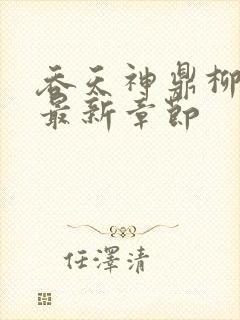 吞天神鼎柳
最新章節
任澤清